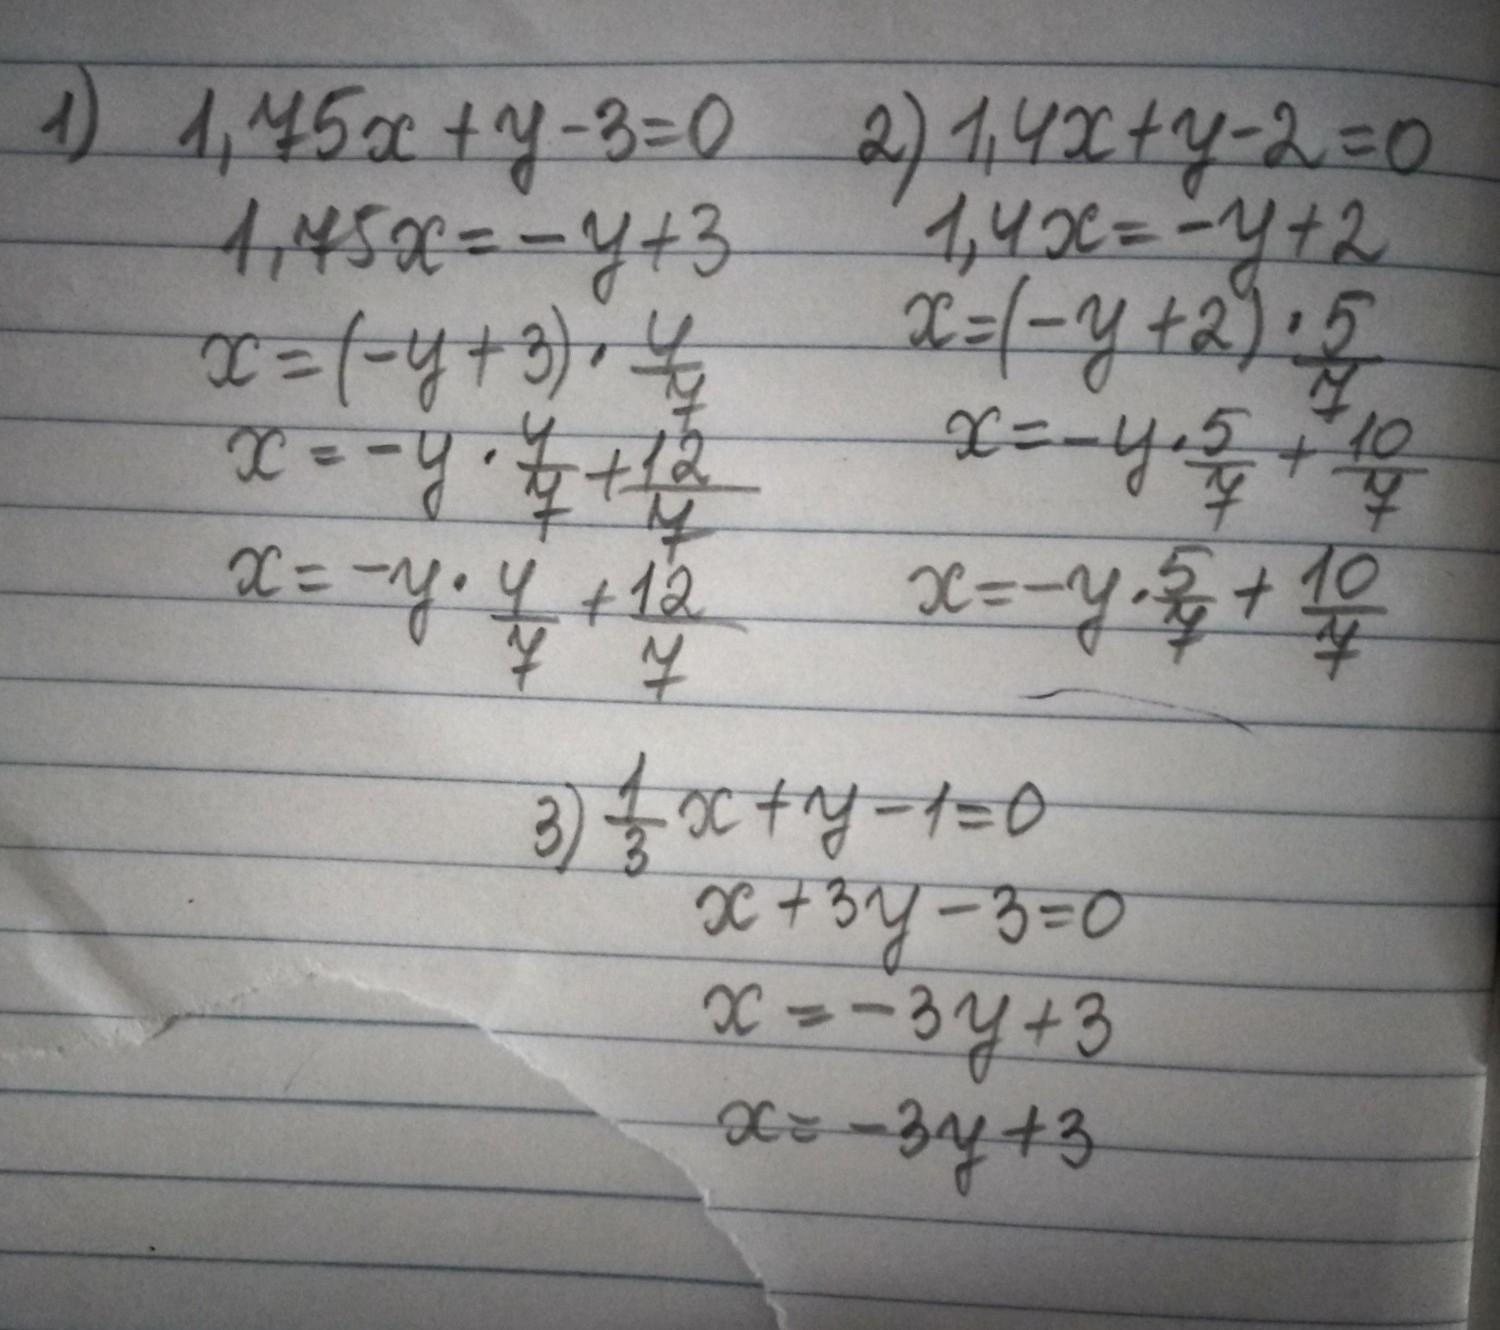 1) 1,75x+y-3=0
1,75x=-y+3
x=(-y+3)·4/7
x=-y·4/7+12/7
x=-y·4/7+12/7
2) 1,4x+y-2=0
1,4x=-y+2
x=(-y+2)·5/7
x=-y·5/7+10/7
x=-y·5/7+10/7
3) 1/3x+y-1=0
x+3y-3=0
x=-3y+3
x=-3y+3